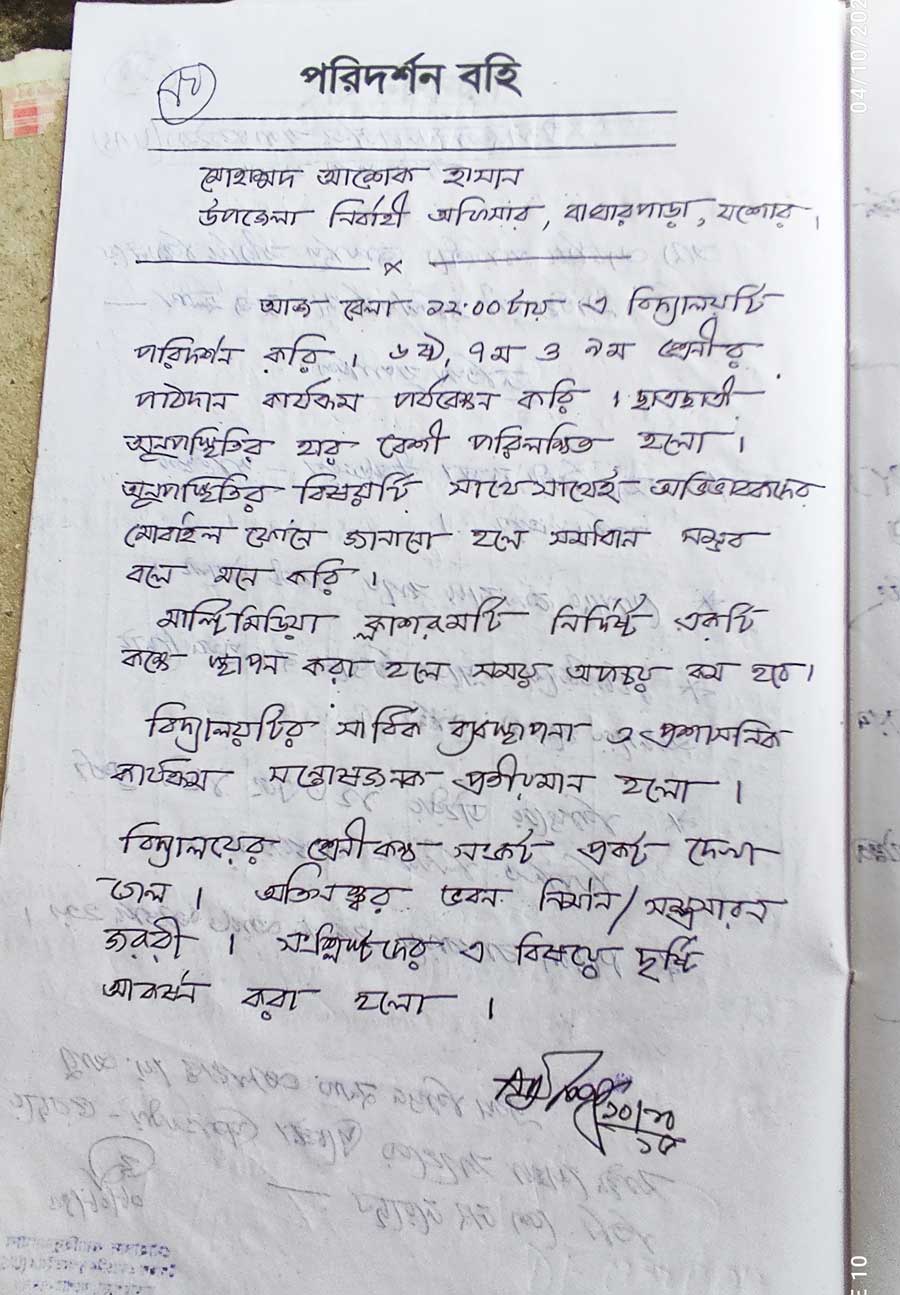 পরিদর্শন বহি
মোহাম্মদ আশেক হাসান
উপজেলা নির্বাহী অফিসার, বাঘারপাড়া, যশোর।
আজ বেলা ১২:০০টায় এ বিদ্যালয়টি
পরিদর্শন করি। ৬ষ্ঠ, ৭ম ও ৯ম শ্রেনীর
পাঠদান কার্যক্রম পর্যবেক্ষন করি। ছাত্রছাত্রী
অনুপস্থিতির হার বেশী পরিলক্ষিত হলো।
অনুপস্থিতির বিষয়টি সাথেসাথেই অভিভাবকদের
মোবাইল ফোনে জানানো হলে সমাধান সম্ভব
বলে মনে করি।
মাল্টিমিডিয়া ক্লাশরুমটি নির্দিষ্ট একটি
কক্ষে স্থাপন করা হলে সময় অপচয় কম হবে।
বিদ্যালয়টির সার্বিক ব্যবস্থাপনা ও প্রশাসনিক
কার্যক্রম সন্তোষজনক প্রতীয়মান হলো।
বিদ্যালয়ের শ্রেনীকক্ষ সংকট প্রকট দেখা
গেল। অতিসত্ত্বর ভবন নির্মান/সম্প্রসারন
জরুরী। সংশ্লিষ্টদের এ বিষয়ে দৃষ্টি
আকর্ষন করা হলো।
04/10/202